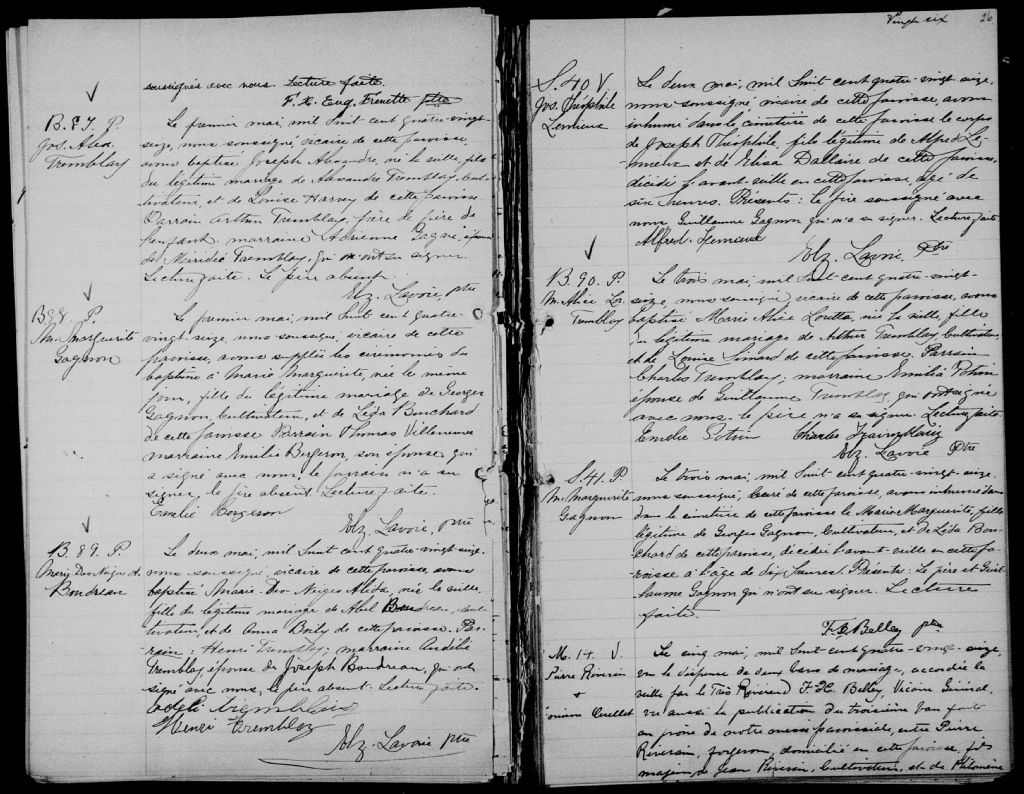 soussignés avec nous. Lecture faite.
F. X. Eug. Frenette ptre
B. 87. P.
Jos. Alex.
Tremblay
Le premier mai, mil huit cent quatre-vingt
seize, nous soussigné, vicaire de cette paroisse,
avons baptisé Joseph Alexandre, né la veille, fils
du légitime mariage de Alexandre Tremblay, cul-
tivateur, et de Louise Harvey de cette paroisse
Parrain Arthur Tremblay, frère de père de
l'enfant, marraine Adrienne Gagné, épouse
de Méridée Tremblay, qui n'ont su signer.
Lecture faite. Le père absent.
Elz. Lavoie, ptre
B. 88. P.
M. Marguerite
Gagnon
Le premier mai, mil huit cent quatre-
vingt-seize, nous soussigné, vicaire de cette
paroisse, avons supplié les cérémonies du
baptême à Marie Marguerite, née le même
jour, fille du légitime mariage de Georges
Gagnon, Cultivateur, et de Léda Bouchard
de cette paroisse Parrain Thomas Villeneuve
marraine Emélie Bergeron, son épouse qui
a signé avec nous, le parrain n'a su
signer, le père absent Lecture faite.
Emélie Bergeron
Elz. Lavoie, ptre
B. 89. P.
Marie Deo Neiges A.
Boudreau
Le deux mai, mil huit cent quatre-vingt seize
nous soussigné, vicaire de cette paroisse, avons
baptisé Marie-Deo-Neiges Aléda, née la veille
fille du légitime mariage de Abel Boudreau, cul-
tivateur, et de Anna Boily de cette paroisse. Par-
rain: Henri Tremblay; marraine Audélie
Tremblay, épouse de Joseph Boudreau, qui ont
signé avec nous, le père absent. Lecture faite.
Odeli Tremblais
Henri Tremblay
Elz. Lavoie ptre
Vingt six 26
S. 40 V
Jos. Théophile
Lemieux
Le deux mai, mil huit cent quatre-vingt seize,
nous soussigné, vicaire de cette paroisse, avons
inhumé dans le cimetière de cette paroisse le corps
de Joseph Théophile, fils légitime de Alfred Le-
mieux et de Eliza Dallaire de cette paroisse,
décédé l'avant-veille en cette paroisse, agé de
six heures. Présents: le père soussigné avec
nous Guillaume Gagnon qui n'a su signer. Lecture faite
Alfred. Lemieux
Elz. Lavoie, Ptre
B. 90. P.
M. Alice Lo.
Tremblay
Le trois mai, mil huit cent quatre-vingt-
seize, nous soussigné vicaire de cette paroisse, avons
baptisé Marie Alice Loretta, née la veille, fille
du légitime mariage de Arthur Tremblay, Cultivateur,
et de Louise Simard de cette paroisse. Parrain
Charles Tremblay; marraine Emélie Potvin
épouse de Guillaume Tremblay, qui ont signé
avec nous. le père n'a su signer. Lecture faite
Emélie Potvin Charles Trainblaiy
Elz. Lavoie Ptre
S. 41. P.
M. Marguerite
Gagnon
Le trois mai, mil huit cent quatre-vingt-seize.
nous soussigné, curé de cette paroisse, avons inhumé dans
dans le cimetière de cette paroisse Marie Marguerite, fille
légitime de Georges Gagnon, Cultivateur, et de Léda Bou-
chard de cette paroisse, décédée l'avant-veille en cette pa-
roisse à l'âge de dix heures. Présents: Le père et Guil-
laume Gagnon qui n'ont su signer. Lecture
faite.
F. X. Belley ptre
M. 14. V.
Pierre Riverin
+
Ouellet
Le cinq mai, mil huit cent quatre-vingt-seize,
vu la dispense de deux bans de mariage, accordée la
veille par le Très Révérend F. X. Belley, Vicaire Général,
vu aussi la publication du troisième ban faite
au prône de notre messe paroissiale, entre Pierre
Riverain, forgeron, domicilié en cette paroisse, fils
majeur de Jean Riverin, Cultivateur, et de Philomène